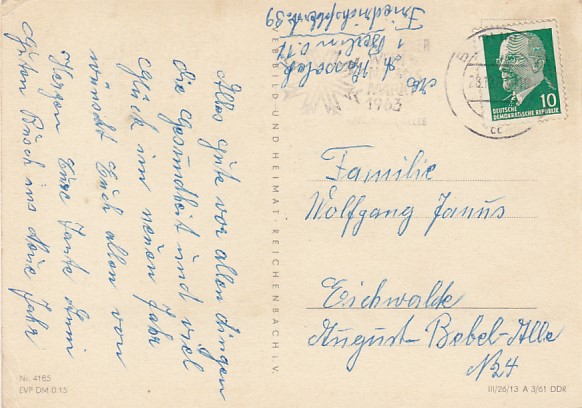 Alles gute vor allen dingen
die Gesundheit und viel
Glück im neuen Jahr
wünscht Euch allen von
Herzen Eure Tante Anni
Guten Rusch ins Neue Jahr
Berlin O.17
Friedrichsfelderstr. 39
1963
10
DEUTSCHE
DEMOKRATISCHE REPUBLIK
BILD UND HEIMAT REICHENBACH I. V.
Familie
Wolfgang Janus
Eichwalde
August-Bebel-Alle
N24
Nr. 4165
EVP DM 0.15
III/26/13 A 3/61 DDR